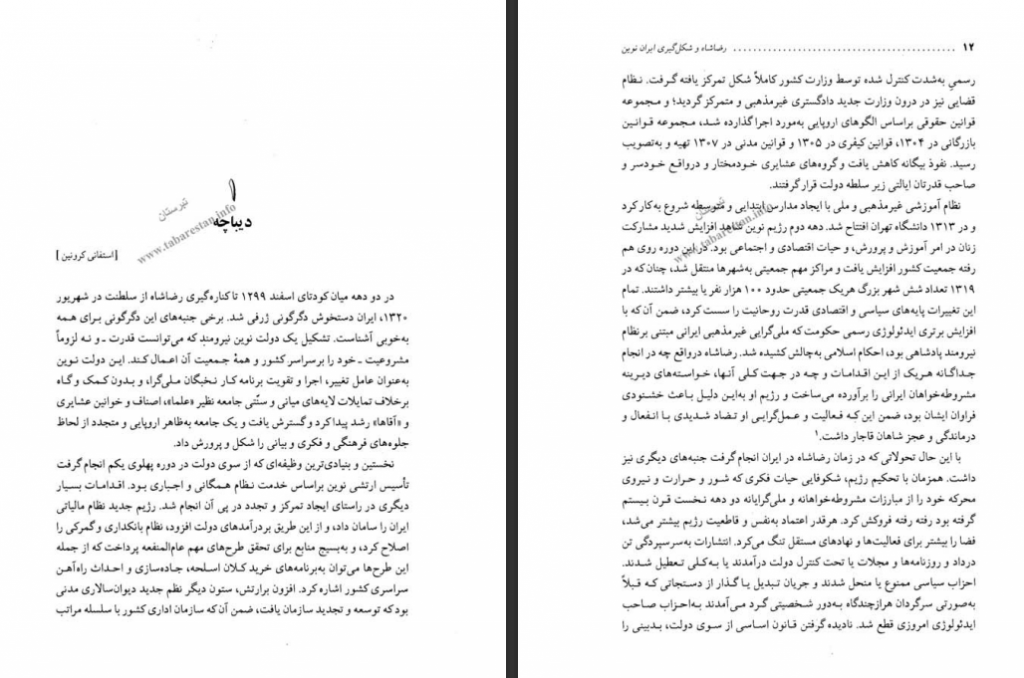 ۱
دیباچه
تبرستان
www.tabarestan.info
[استفانی کرونین]
در دو دهه میان کودتای اسفند ۱۲۹۹ تا کناره‌گیری رضاشاه از سلطنت در شهریور
۱۳۲۰، ایران دستخوش دگرگونی ژرفی شد. برخی جنبه‌های این دگرگونی برای همه
به‌خوبی آشناست. تشکیل یک دولت نوین نیرومند که می‌توانست قدرت ـ و نه لزوماً
مشروعیت ـ خود را برسراسر کشور و همهٔ جمعیت آن اعمال کند. این دولت نوین
به‌عنوان عامل تغییر، اجرا و تقویت برنامه کار نخبگان ملی‌گرا، و بدون کمک و گاه
برخلاف تمایلات لایه‌های میانی و سنّتی جامعه نظیر «علما»، اصناف و خوانین عشایری
و «آقاها» رشد پیدا کرد و گسترش یافت و یک جامعه به‌ظاهر اروپایی و متجدد از لحاظ
جلوه‌های فرهنگی و فکری و بیانی را شکل و پرورش داد.
نخستین و بنیادی‌ترین وظیفه‌ای که از سوی دولت در دوره پهلوی یکم انجام گرفت
تأسیس ارتشی نوین براساس خدمت نظام همگانی و اجباری بود. اقدامات بسیار
دیگری در راستای ایجاد تمرکز و تجدد در پی آن انجام شد. رژیم جدید نظام مالیاتی
ایران را سامان داد، و از این طریق بردرآمدهای دولت افزود، نظام بانکداری و گمرکی را
اصلاح کرد، و به‌بسیج منابع برای تحقق طرح‌های مهم عام‌المنفعه پرداخت که از جمله
این طرح‌ها می‌توان به‌برنامه‌های خرید کلان اسلحه، جاده‌سازی و احداث راه‌آهن
سراسری کشور اشاره کرد. افزون برارتش، ستون دیگر نظم جدید دیوان‌سالاری مدنی
بود که توسعه و تجدید سازمان یافت، ضمن آن که سازمان اداری کشور با سلسله مراتب
۱۲ ............................................ رضاشاه و شکل‌گیری ایران نوین
رسمیِ به‌شدت کنترل شده توسط وزارت کشور کاملاً شکل تمرکز یافته گرفت. نظام
قضایی نیز در درون وزارت جدید دادگستری غیرمذهبی و متمرکز گردید؛ و مجموعه
قوانین حقوقی براساس الگوهای اروپایی به‌مورد اجرا گذارده شد، مجموعه قوانین
بازرگانی در ۱۳۰۴، قوانین کیفری در ۱۳۰۵ و قوانین مدنی در ۱۳۰۷ تهیه و به‌تصویب
رسید. نفوذ بیگانه کاهش یافت و گروه‌های عشایری خودمختار و درواقع خودسر و
صاحب قدرتان ایالتی زیر سلطه دولت قرار گرفتند.
نظام آموزشی غیرمذهبی و ملی با ایجاد مدارس ابتدایی و متوسطه شروع به‌کار کرد
و در ۱۳۱۳ دانشگاه تهران افتتاح شد. دهه دوم رژیم نوین شاهد افزایش شدید مشارکت
زنان در امر آموزش و پرورش، و حیات اقتصادی و اجتماعی بود. در این دوره روی هم
رفته جمعیت کشور افزایش یافت و مراکز مهم جمعیتی به‌شهرها منتقل شد، چنان‌که در
۱۳۱۹ تعداد شش شهر بزرگ هریک جمعیتی حدود ۱۰۰ هزار نفر یا بیشتر داشتند. تمام
این تغییرات پایه‌های سیاسی و اقتصادی قدرت روحانیت را سست کرد، ضمن آن که با
افزایش برتری ایدئولوژی رسمی حکومت که ملی‌گرایی غیرمذهبی ایرانی مبتنی برنظام
نیرومند پادشاهی بود، احکام اسلامی به‌چالش کشیده شد. رضاشاه درواقع چه در انجام
جداگانه هریک از این اقدامات و چه در جهت کلی آنها، خواسته‌های دیرینه
مشروطه‌خواهان ایرانی را برآورده می‌ساخت و رژیم او به‌این دلیل باعث خشنودی
فراوان ایشان بود، ضمن این که فعالیت و عمل‌گرایی او تضاد شدیدی با انفعال و
درماندگی و عجز شاهان قاجار داشت.۱
با این حال تحولاتی که در زمان رضاشاه در ایران انجام گرفت جنبه‌های دیگری نیز
داشت. همزمان با تحکیم رژیم، شکوفایی حیات فکری که شور و حرارت و نیروی
محرکه خود را از مبارزات مشروطه‌خواهانه و ملی‌گرایانه دو دهه نخست قرن بیستم
گرفته بود رفته رفته فروکش کرد. هرقدر اعتماد به‌نفس و قاطعیت رژیم بیشتر می‌شد،
فضا را بیشتر برای فعالیت‌ها و نهادهای مستقل تنگ می‌کرد. انتشارات به‌سرسپردگی تن
درداد و روزنامه‌ها و مجلات یا تحت کنترل دولت درآمدند یا به‌کلی تعطیل شدند.
احزاب سیاسی ممنوع یا منحل شدند و جریان تبدیل یا گذار از دستجاتی که قبلاً
به‌صورتی سرگردان هرازچندگاه به‌دور شخصیتی گرد می‌آمدند به‌احزاب صاحب
ایدئولوژی امروزی قطع شد. نادیده گرفتن قانون اساسی از سوی دولت، بدبینی را
تبرستان
www.tabarestan.info